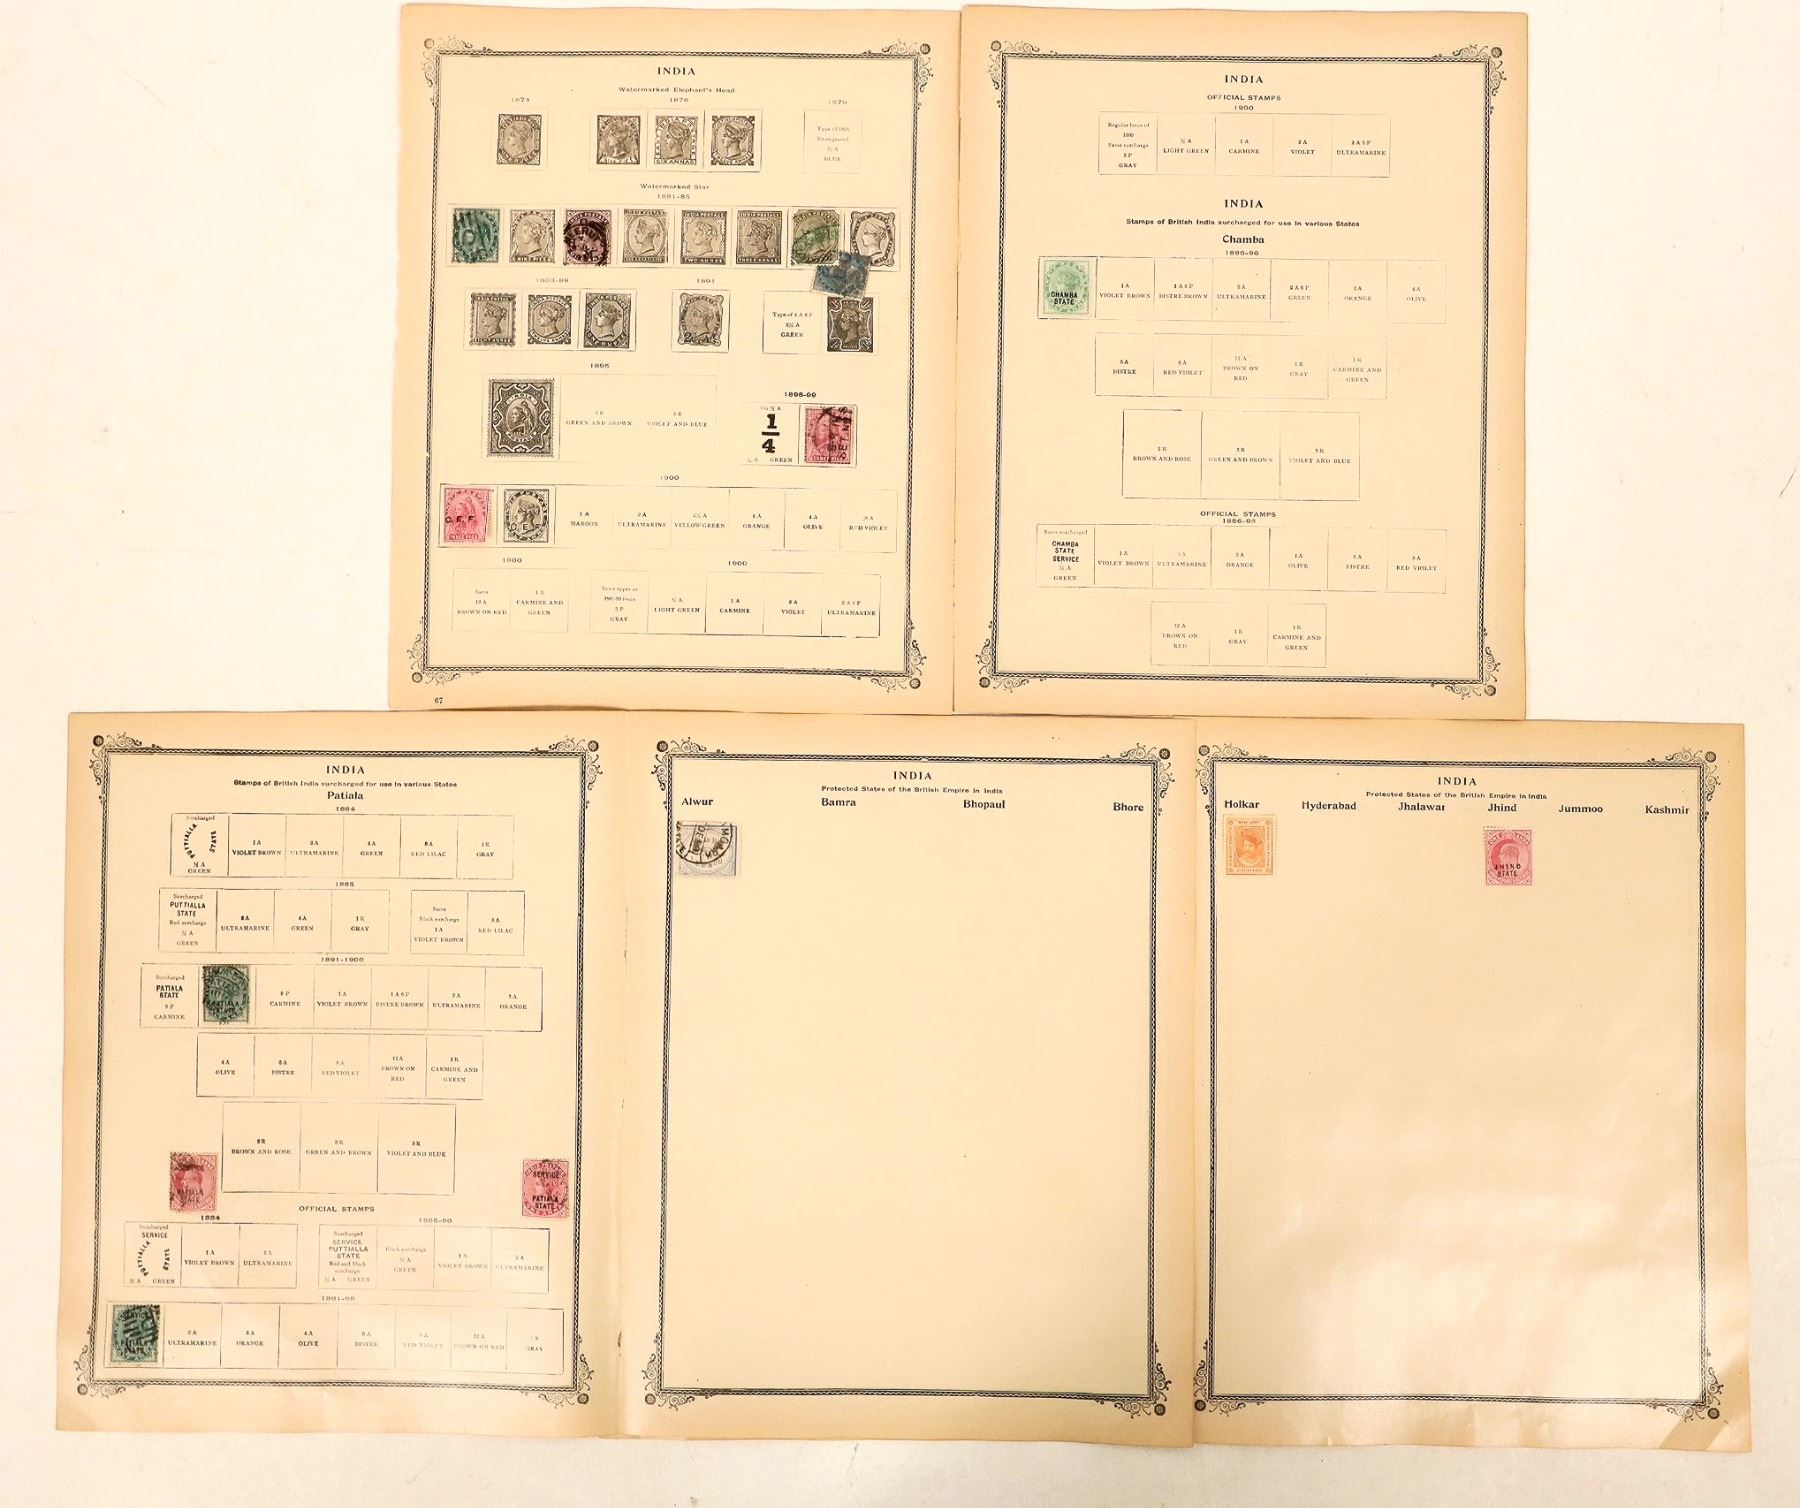 INDIA
Watermarked Elephant's Head
1874 1876 1879
Type of 1865
Re-engraved
½ A
BLUE
Watermarked Star
1881-85
1883-88 1891
Type of 4 A 6 P
2½ A
GREEN
1895
GREEN AND BROWN
5 R
VIOLET AND BLUE
1898-99
1/4
GREEN
1900
C. E. F.
C. E. F.
1 A
MAROON
2 A
ULTRAMARINE
2½ A
YELLOW GREEN
3 A
ORANGE
4 A
OLIVE
8 A
RED VIOLET
1900 1900
Same
12 A
BROWN ON RED
1 R
CARMINE AND
GREEN
3 P
GRAY
½ A
LIGHT GREEN
1 A
CARMINE
2 A
VIOLET
2 A 6 P
ULTRAMARINE
67
INDIA
OFFICIAL STAMPS
1900
Regular Issue of
1900
Same surcharge
3 P
GRAY
½ A
LIGHT GREEN
1 A
CARMINE
2 A
VIOLET
2 A 6 P
ULTRAMARINE
INDIA
Stamps of British India surcharged for use in various States
Chamba
1886-98
CHAMBA
STATE
1 A
VIOLET BROWN
1 A 6 P
BISTRE BROWN
2 A
ULTRAMARINE
2 A 6 P
GREEN
3 A
ORANGE
4 A
OLIVE
6 A
BISTRE
8 A
RED VIOLET
12 A
BROWN ON
RED
1 R
GRAY
1 R
CARMINE AND
GREEN
2 R
BROWN AND ROSE
3 R
GREEN AND BROWN
5 R
VIOLET AND BLUE
OFFICIAL STAMPS
1886-98
Same surcharged
CHAMBA
STATE
SERVICE
½ A
GREEN
1 A
VIOLET BROWN
2 A
ULTRAMARINE
3 A
ORANGE
4 A
OLIVE
6 A
BISTRE
8 A
RED VIOLET
12 A
BROWN ON
RED
1 R
GRAY
1 R
CARMINE AND
GREEN
INDIA
Stamps of British India surcharged for use in various States
Patiala
1884
Surcharged
PUTTIALLA
STATE
½ A
GREEN
1 A
VIOLET BROWN
2 A
ULTRAMARINE
4 A
GREEN
8 A
RED LILAC
1 R
GRAY
1885
Surcharged
PUTTIALLA
STATE
Red surcharge
½ A
GREEN
2 A
ULTRAMARINE
4 A
GREEN
1 R
GRAY
Same
Black surcharge
1 A
VIOLET BROWN
8 A
RED LILAC
1891-1900
Surcharged
PATIALA
STATE
9 P
CARMINE
PATIALA
STATE
9 P
CARMINE
1 A
VIOLET BROWN
1 A 6 P
BISTRE BROWN
2 A
ULTRAMARINE
3 A
ORANGE
4 A
OLIVE
6 A
BISTRE
8 A
RED VIOLET
12 A
BROWN ON
RED
1 R
CARMINE AND
GREEN
2 R
BROWN AND ROSE
3 R
GREEN AND BROWN
5 R
VIOLET AND BLUE
SERVICE
PATIALA
STATE
SERVICE
PATIALA
STATE
OFFICIAL STAMPS
1884 1885-90
Surcharged
SERVICE
PUTTIALLA
STATE
½ A GREEN
1 A
VIOLET BROWN
2 A
ULTRAMARINE
Surcharged
SERVICE
PUTTIALLA
STATE
Red and black
surcharge
½ A GREEN
Black surcharge
½ A
GREEN
1 A
VIOLET BROWN
2 A
ULTRAMARINE
1891-98
SERVICE
PATIALA
STATE
2 A
ULTRAMARINE
3 A
ORANGE
4 A
OLIVE
6 A
BISTRE
8 A
RED VIOLET
12 A
BROWN ON RED
1 R
GRAY
INDIA
Protected States of the British Empire in India
Alwur Bamra Bhopaul Bhore
INDIA
Protected States of the British Empire in India
Holkar Hyderabad Jhalawar Jhind Jummoo Kashmir
JHIND
STATE